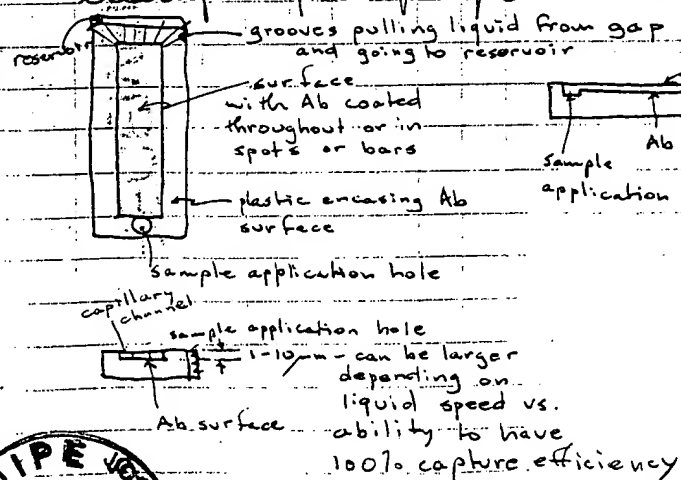 reservoir
grooves pulling liquid from gap
and going to reservoir
surface
with Ab coated
throughout or in
spots or bars
plastic encasing Ab
surface
sample application hole
Ab
sample
application
capillary
channel
sample application hole
1-10µm - can be larger
depending on
liquid speed vs.
ability to have
100% capture efficiency
Ab surface
IPE